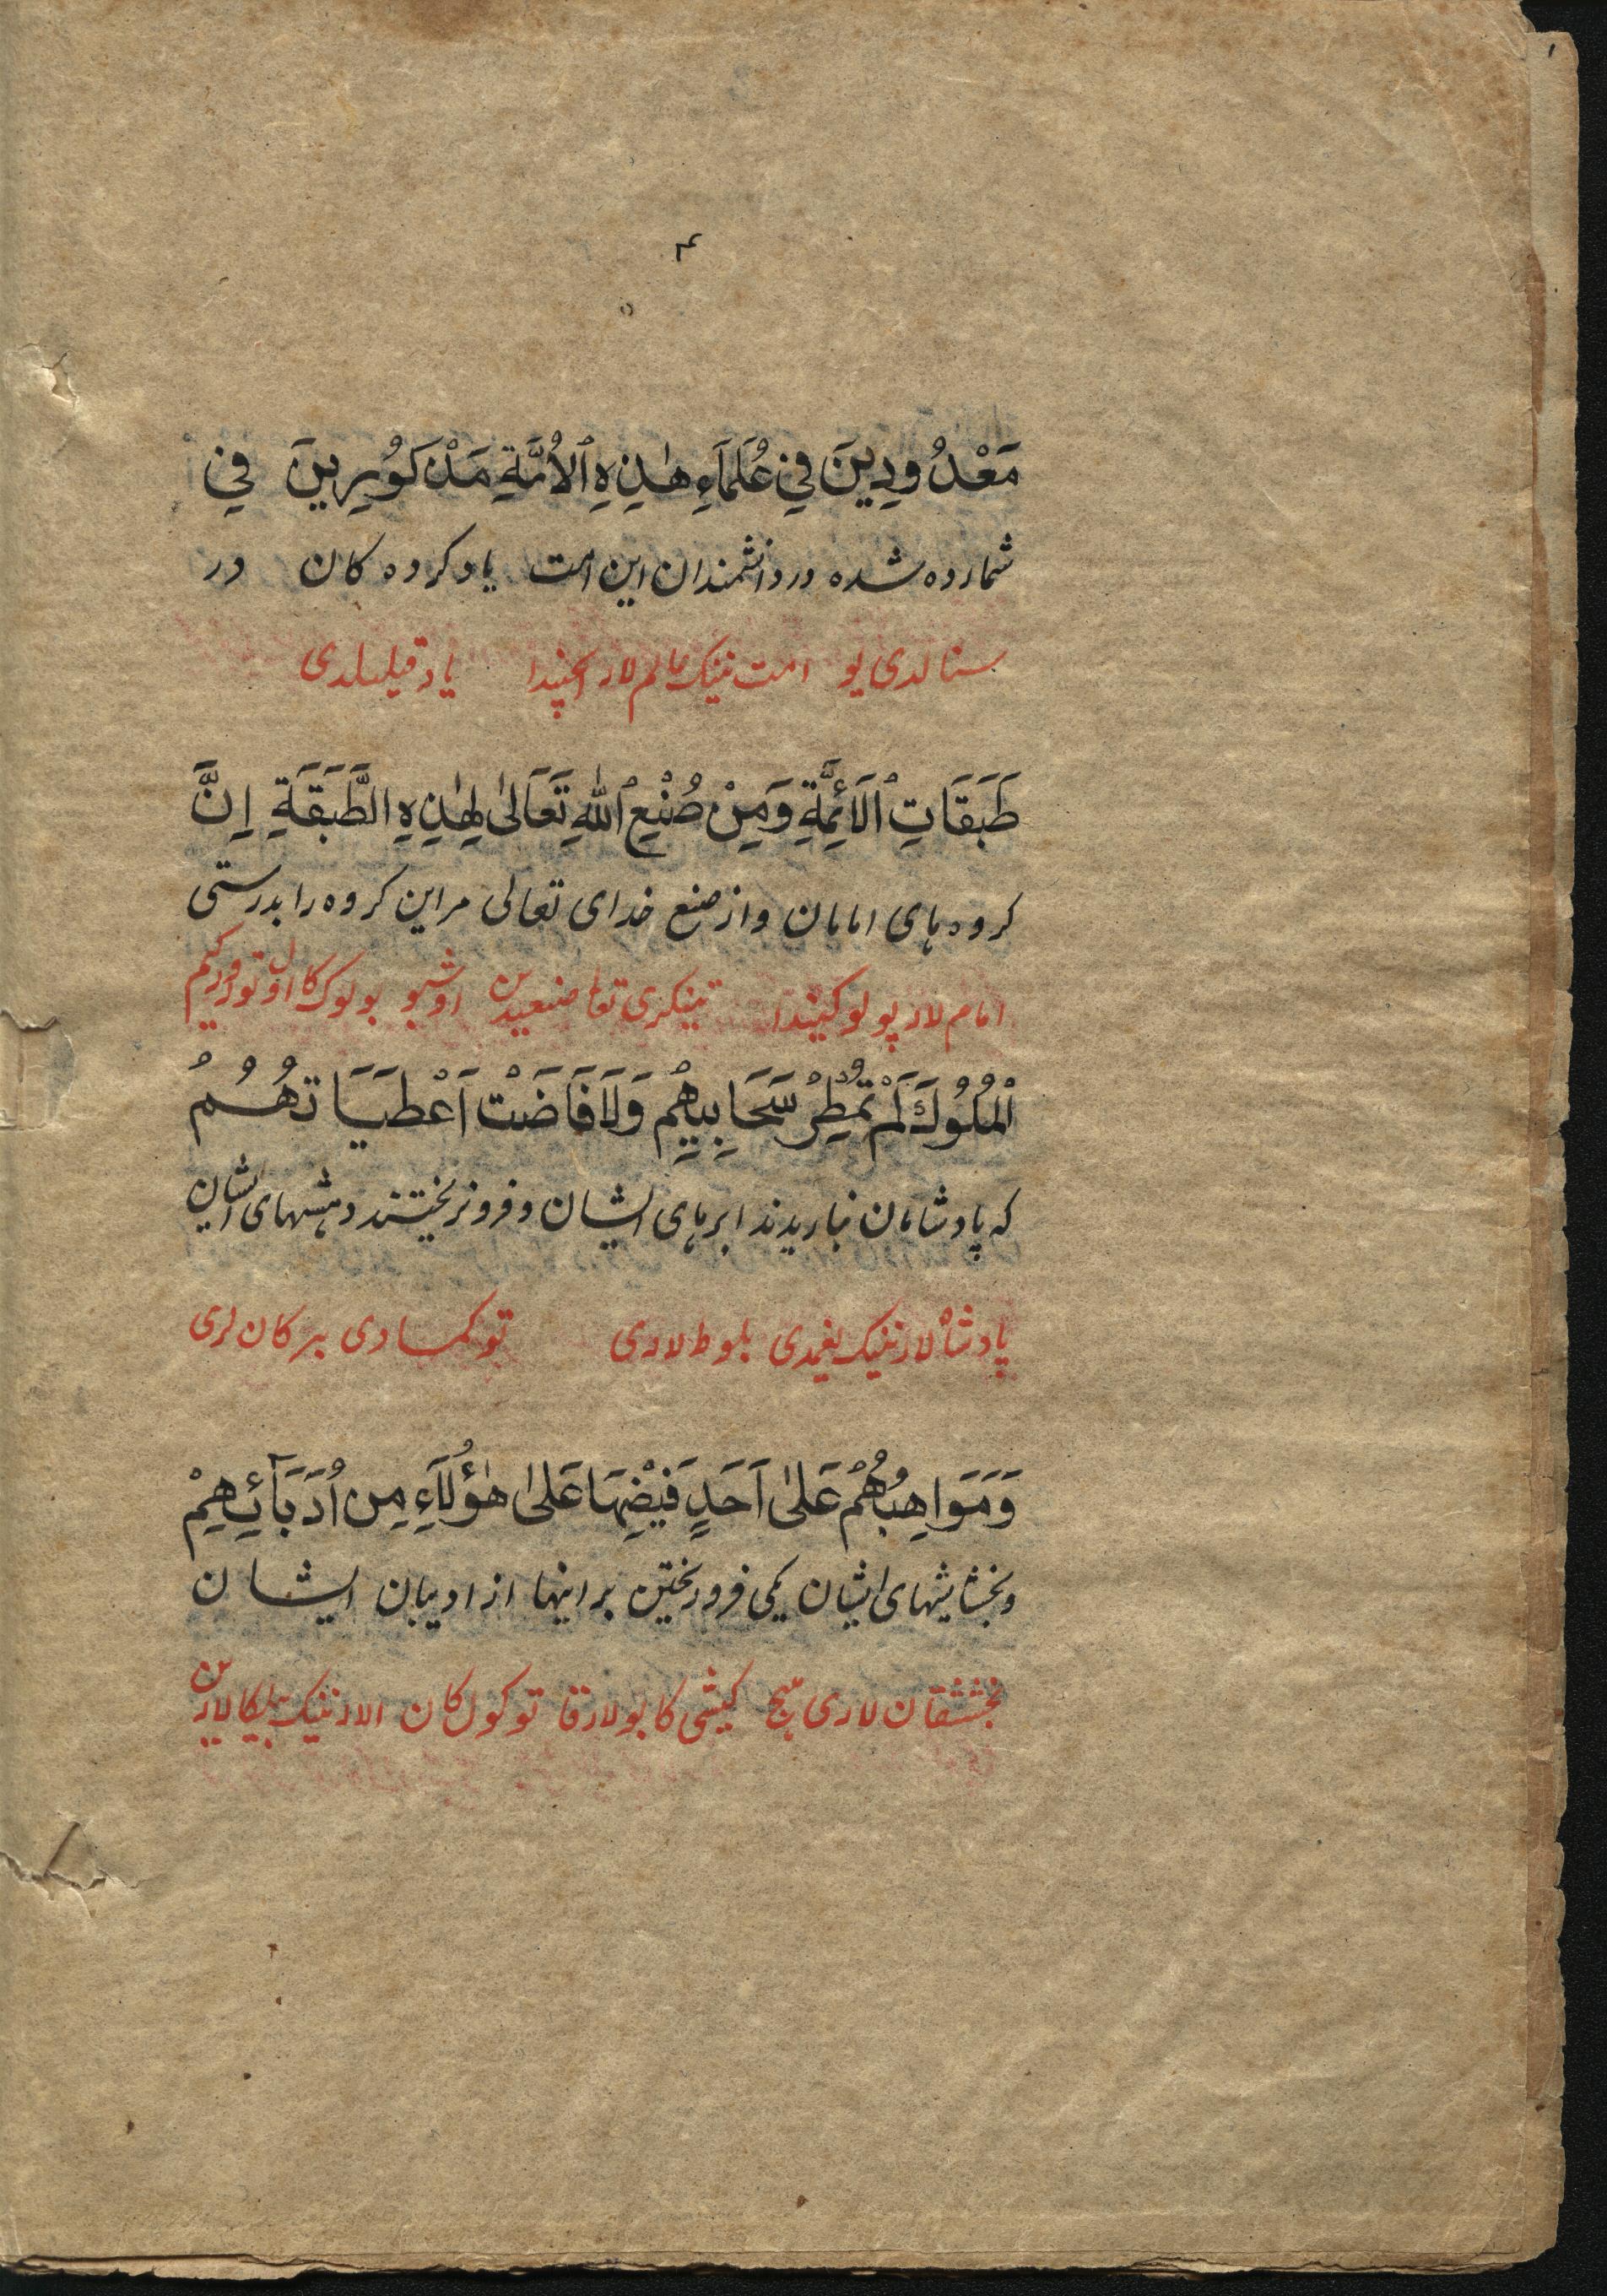 مَعْدُودِينَ فِي عُلَمَآءِ هٰذِهِ ٱلْاُمَّةِ مَذْكُوْرِينَ فِي
شمارده شده در دانشمندان این امت یاد کرده کان در
سنالدی بو امت نینک عالم لار ایچیندا یاد قیلیلدی
طَبَقَاتِ ٱلْاَئِمَّةِ وَمِنْ صُنْعِ ٱللّٰهِ تَعَالىٰ لِهٰذِهِ الطَّبَقَةِ اِنَّ
کروه های امامان و از صنع خدای تعالی مر این کروه را بدرستی
امام لار بولوکیندا تینکری تعا صنعیدین اوشبو بولوک کا اول تورورکیم
ٱلْمُلُوكَ لَمْ تُمْطِرْ سَحَابِيهِمْ وَلَا فَاضَتْ اَعْطَيَاتُهُمْ
که پادشاهان نباریدند ابرهای ایشان و فرو نریختند دهشهای ایشان
پادشاه لار نینک یغمدی بلوط لاری توکمادی بیرکان لری
وَمَوَاهِبُهُمْ عَلىٰ اَحَدٍ فَيْضِهَا عَلىٰ هٰؤُلَآءِ مِنْ اُدَبَآئِهِمْ
و بخشایشهای ایشان یکی فرو ریختن بر اینها از ادیبان ایشان
بخششقان لاری هیچ کیشی کا بولارقا توکول کان الار نینک بیلیکا لاردین